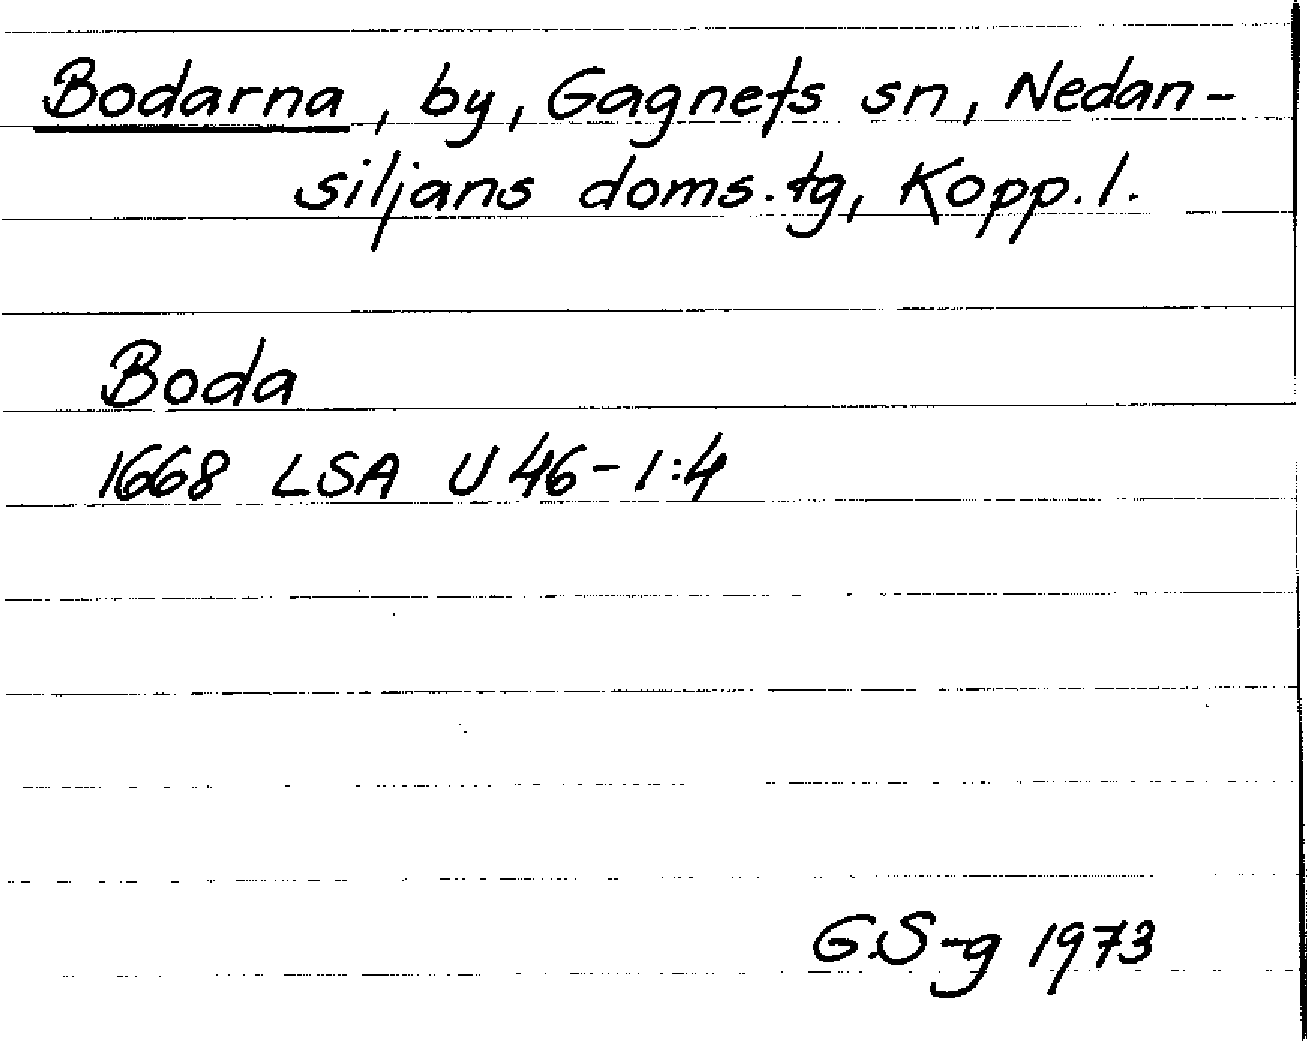 Bodarna, by, Gagnefs sn, Nedan-
siljans doms.tg, Kopp.l.
Boda
1668 LSA U 46-1:4
G.S-g 1973